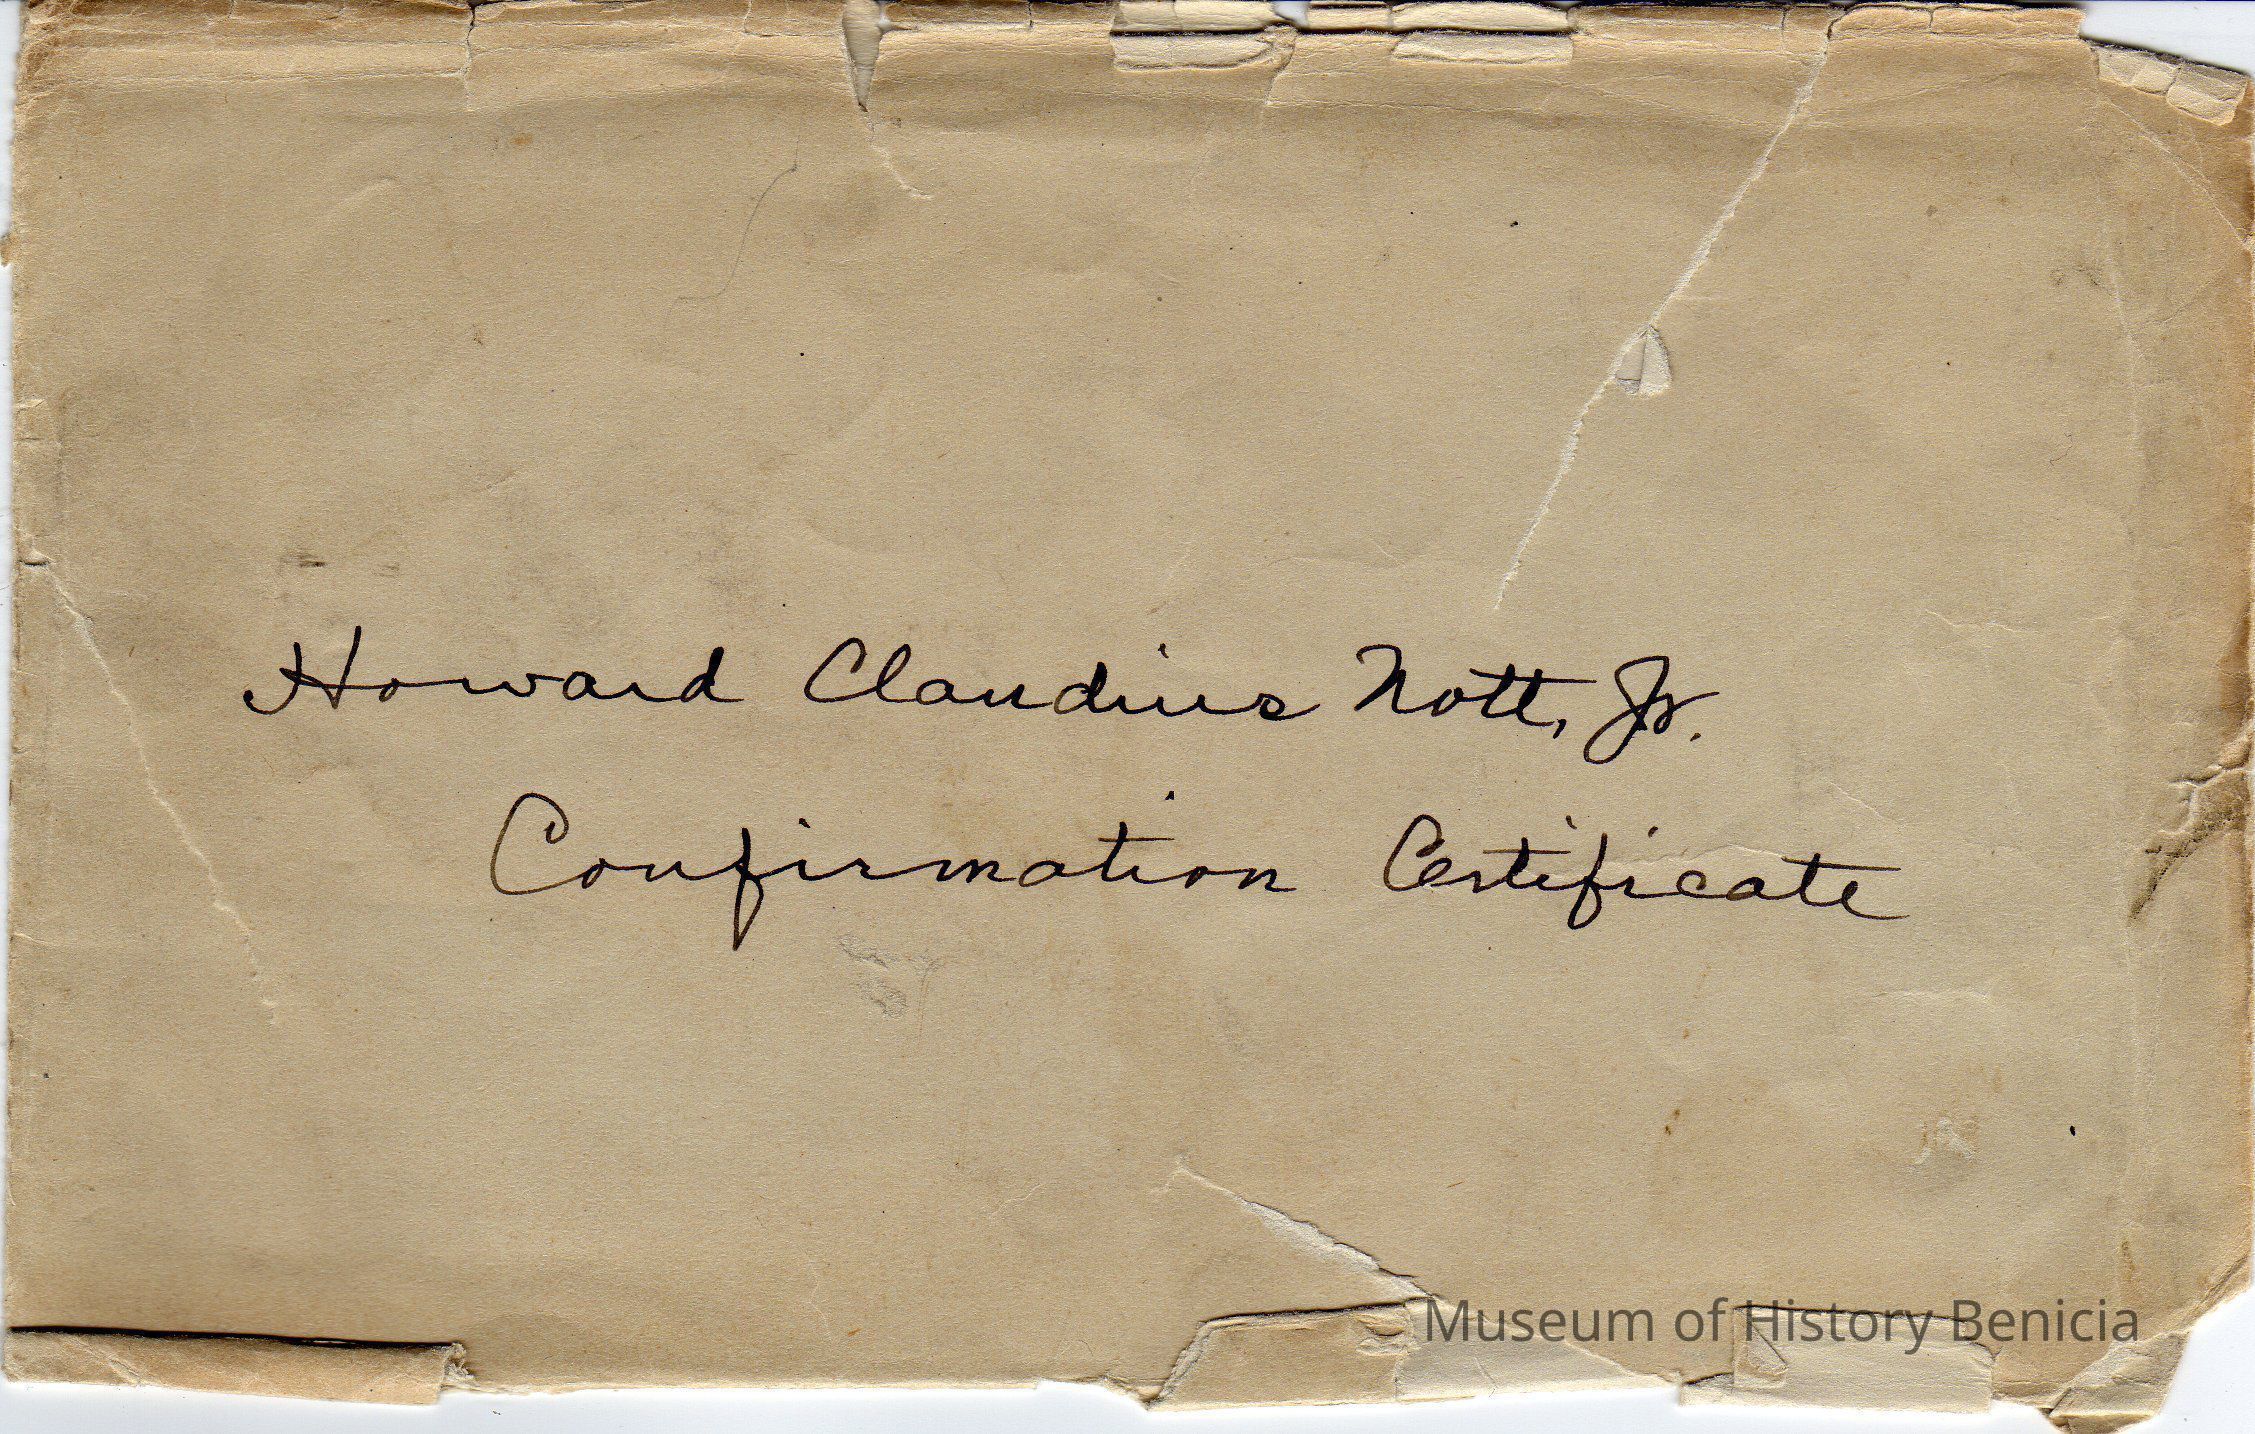 Howard Claudius Nott, Jr.
Confirmation Certificate
Museum of History Benicia